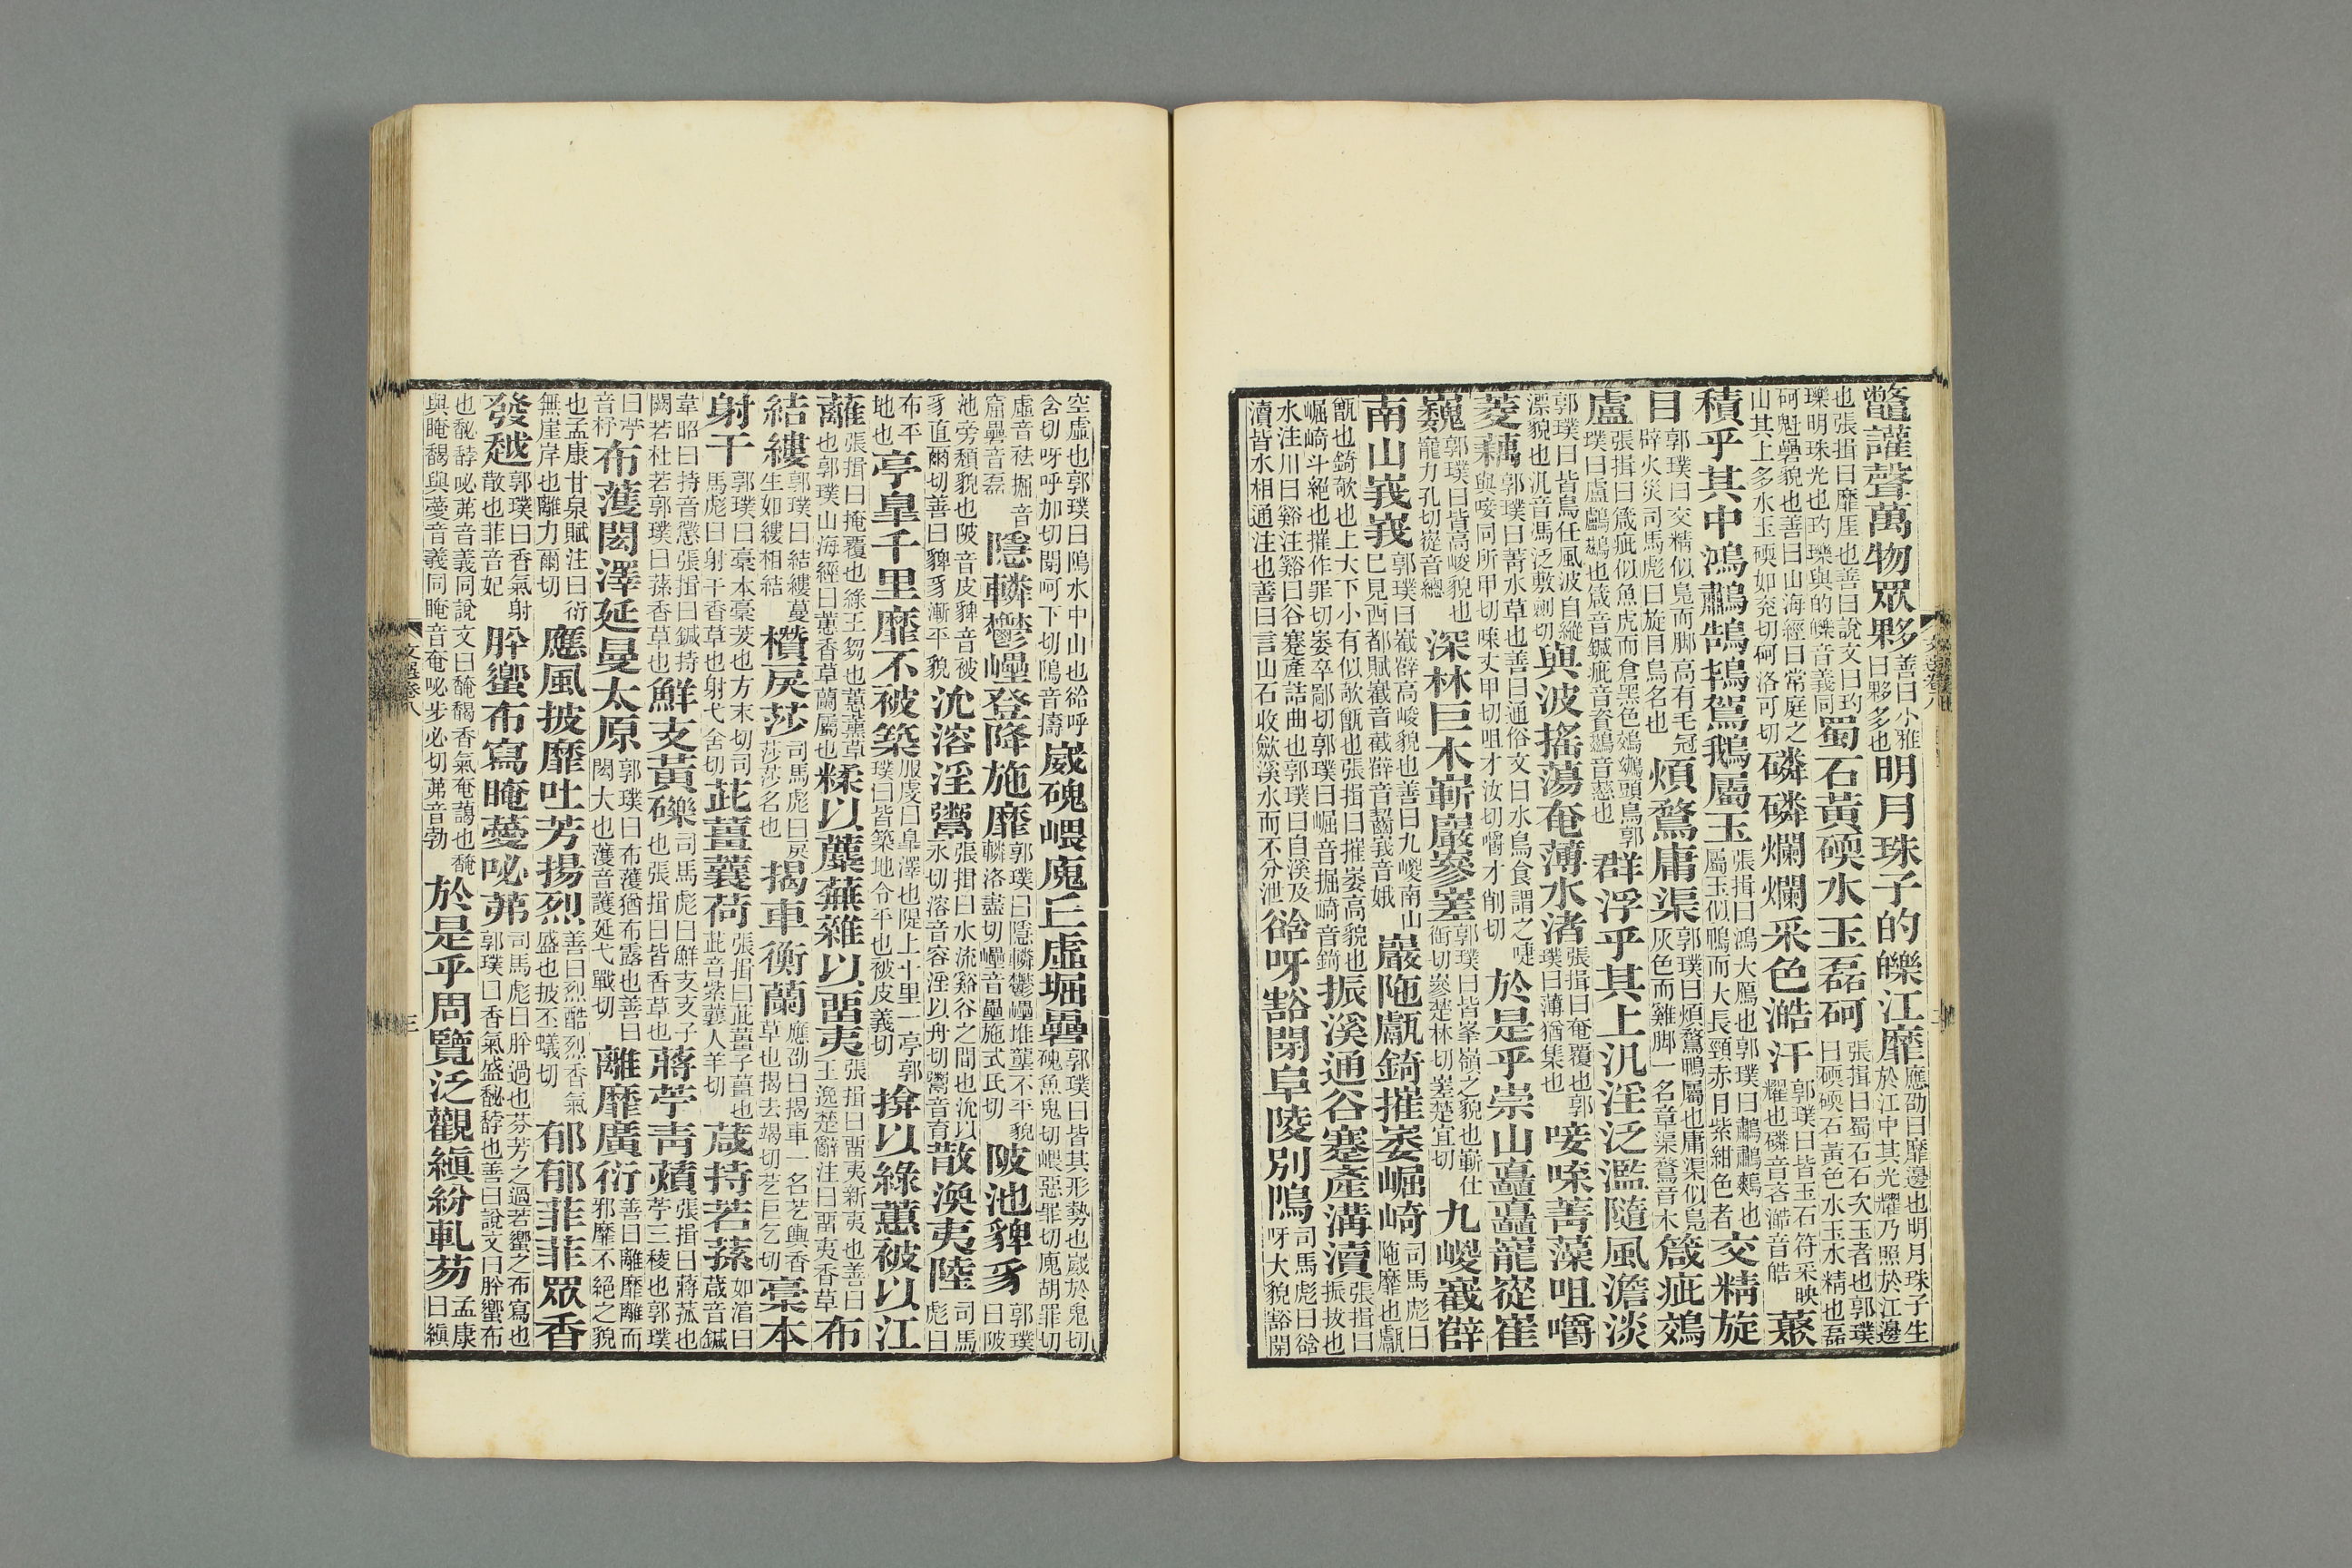 鼈讙聲萬物眾夥善曰小雅曰夥多也明月珠子的皪江靡應劭曰靡邊也明月珠子生於江中其光耀乃照於江邊
也張揖曰靡厓也善曰說文曰玓瓅明珠光也玓瓅與的皪音義同蜀石黃碝水玉磊砢張揖曰蜀石石次玉者也郭璞曰碝石黃色水玉水精也磊
砢魁礨貌也善曰山海經曰常庭之山其上多水玉碝如兗切砢洛可切磷磷爛爛采色澔汗郭璞曰皆玉石符采映耀也磷音吝澔音皓藂
積乎其中鴻鷫鵠鴇鴐鵝屬玉張揖曰鴻大鴈也郭璞曰鷫鷫鷞也屬玉似鴨而大長頸赤目紫紺色者交精旋
目郭璞曰交精似鳧而脚高有毛冠辟火災司馬彪曰旋目鳥名也煩鶩庸渠郭璞曰煩鶩鴨屬也庸渠似鳧灰色而雞脚一名章渠鶩音木箴疵鵁
盧張揖曰箴疵似魚虎而倉黑色鵁鸕頭鳥郭璞曰盧鸕鷀也箴音鍼疵音貲鷀音慈也群浮乎其上汎淫泛濫隨風澹淡
郭璞曰皆鳥任風波自縱漂貌也汎音馮泛敷劒切與波搖蕩奄薄水渚張揖曰奄覆也郭璞曰薄猶集也唼喋菁藻咀嚼
菱藕郭璞曰菁水草也善曰通俗文曰水鳥食謂之啑與唼同所甲切喋丈甲切咀才汝切嚼才削切於是乎崇山矗矗巃嵷崔
巍郭璞曰皆高峻貌也巃力孔切嵷音總深林巨木嶄巖參差郭璞曰皆峯嶺之貌也嶄仕銜切參楚林切差楚宜切九嵕嶻嶭
南山峩峩郭璞曰嶻嶭高峻貌也善曰九嵕南山巳見西都賦嶻音截嶭音齧峩音娥巖陁甗錡摧崣崛崎司馬彪曰陁靡也甗
甑也錡欹也上大下小有似欹甑也張揖曰摧崣高貌也崛崎斗絕也摧作罪切崣卒鄙切郭璞曰崛音掘崎音錡振溪通谷蹇產溝瀆張揖曰振拔也
水注川曰谿注谿曰谷蹇產詰曲也郭璞曰自溪及瀆皆水相通注也善曰言山石收歛溪水而不分泄谽呀豁閉阜陵別隝司馬彪曰谽呀大貌豁閉
空虛也郭璞曰隝水中山也谽呼含切呀呼加切閉呵下切隝音擣崴磈㟪廆丘虛堀礨郭璞曰皆其形勢也崴於鬼切磈魚鬼切㟪惡罪切廆胡罪切
虛音祛堀音窟礨音磊隱轔鬱㠥登降施靡郭璞曰隱轔鬱㠥堆壟不平貌轔洛盡切㠥音壘施式氏切陂池貏豸郭璞曰陂
池旁頹貌也陂音皮貏音被豸直爾切善曰貏豸漸平貌沇溶淫鬻張揖曰水流谿谷之間也沇以永切溶音容淫以舟切鬻音育散渙夷陸司馬彪曰
布平地也亭皐千里靡不被築服虔曰皐澤也隄上十里一亭郭璞曰皆築地令平也被皮義切揜以綠蕙被以江
蘺張揖曰掩覆也綠王芻也蕙薰草也郭璞山海經曰蕙香草蘭屬也糅以蘪蕪雜以畱夷張揖曰畱夷新夷也善曰王逸楚辭注曰畱夷香草布
結縷郭璞曰結縷蔓生如縷相結攢戾莎司馬彪曰戾莎莎名也揭車衡蘭應劭曰揭車一名芞輿香草也揭去竭切芞巨乞切槀本
射干郭璞曰槀本槀茇也方末切司馬彪曰射干香草也射弋舍切茈薑蘘荷張揖曰茈薑子薑也茈音紫蘘人羊切葴持若蓀如淳曰葴音鍼
韋昭曰持音懲張揖曰鍼持闕若杜若郭璞曰蓀香草也鮮支黃礫司馬彪曰鮮支支子也張揖曰皆香草也蔣苧青薠張揖曰蔣菰也苧三稜也郭璞
曰苧音杼布濩閎澤延曼太原郭璞曰布濩猶布露也善曰閎大也濩音護延弋戰切離靡廣衍善曰離靡離而邪靡不絕之貌
也孟康甘泉賦注曰衍無崖岸也離力爾切應風披靡吐芳揚烈善曰烈酷烈香氣盛也披丕蟻切郁郁菲菲眾香
發越郭璞曰香氣射散也菲音妃肸蠁布寫晻薆咇茀司馬彪曰肸過也芬芳之過若蠁之布寫也郭璞曰香氣盛馝馞也善曰說文曰肸蠁布
也馝馞咇茀音義同說文曰馣䭿香氣奄藹也馣與晻䭿與薆音義同晻音奄咇步必切茀音勃於是乎周覽泛觀縝紛軋芴孟康曰縝
文選卷八
三